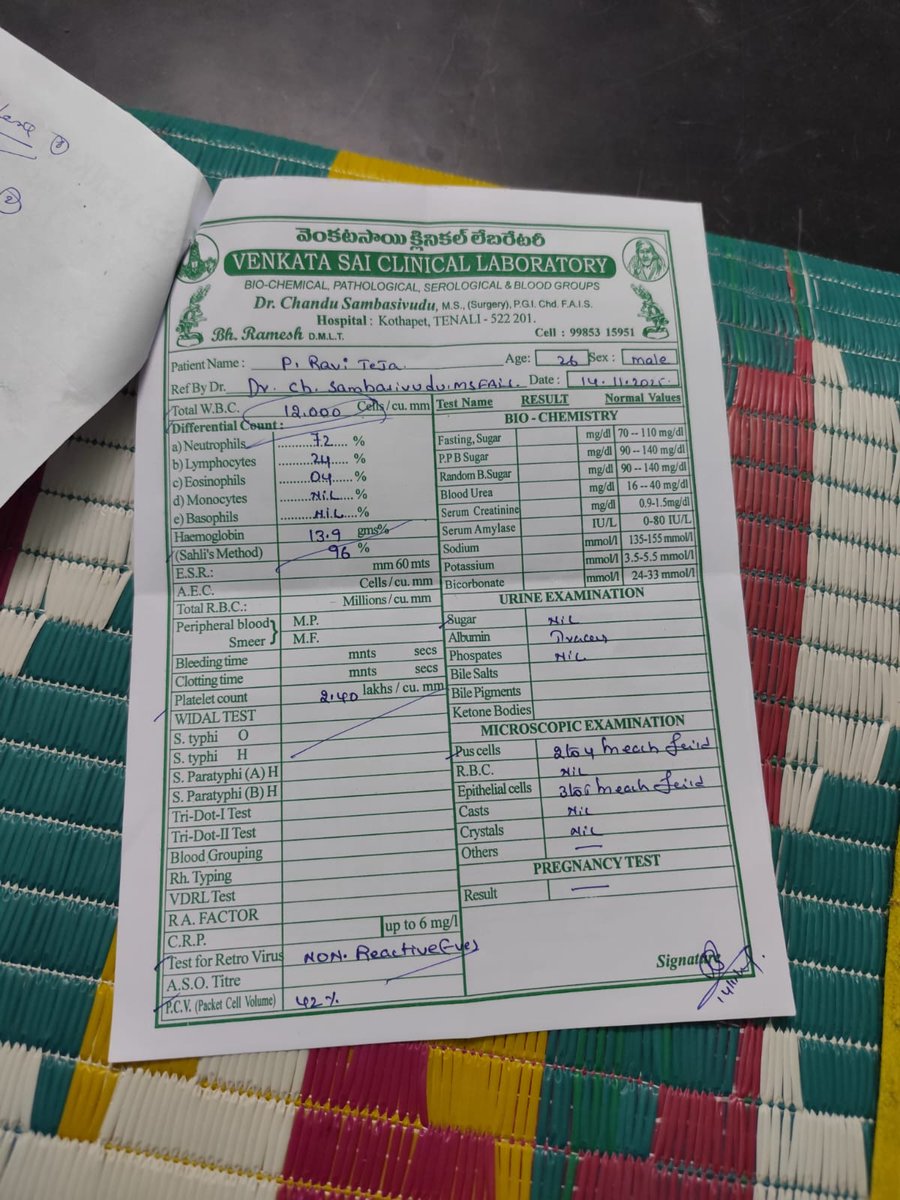 వెంకటసాయి క్లినికల్ లేబరేటరీ
VENKATA SAI CLINICAL LABORATORY
BIO-CHEMICAL, PATHOLOGICAL, SEROLOGICAL & BLOOD GROUPS
Dr. Chandu Sambasivudu, M.S., (Surgery), P.G.I. Chd. F.A.I.S.
Hospital : Kothapet, TENALI - 522 201.
Bh. Ramesh D.M.L.T. Cell : 99853 15951
Patient Name : P. Ravi Teja. Age: 26 Sex : male
Ref By Dr. Dr. Ch. Sambasivudu. Date : 14.11.2025.
Total W.B.C. 12.000 Cells / cu. mm
Differential Count :
a) Neutrophils 72 %
b) Lymphocytes 24 %
c) Eosinophils 04 %
d) Monocytes NiL %
e) Basophils NiL %
Haemoglobin 13.9 gms%
(Sahli's Method) 96 %
E.S.R.: mm 60 mts
A.E.C. Cells / cu. mm
Total R.B.C.: Millions / cu. mm
Peripheral blood Smeer } M.P.
M.F.
Bleeding time mnts secs
Clotting time mnts secs
Platelet count 2.40 lakhs / cu. mm
WIDAL TEST
S. typhi O
S. typhi H
S. Paratyphi (A) H
S. Paratyphi (B) H
Tri-Dot-I Test
Tri-Dot-II Test
Blood Grouping
Rh. Typing
VDRL Test
R.A. FACTOR
C.R.P. up to 6 mg/l
Test for Retro Virus NON. Reactive
A.S.O. Titre
P.C.V. (Packet Cell Volume) 42%
Test Name RESULT Normal Values
BIO - CHEMISTRY
Fasting, Sugar mg/dl 70 -- 110 mg/dl
P.P B Sugar mg/dl 90 -- 140 mg/dl
Random B.Sugar mg/dl 90 -- 140 mg/dl
Blood Urea mg/dl 16 -- 40 mg/dl
Serum Creatinine mg/dl 0.9-1.5mg/dl
Serum Amylase IU/L 0-80 IU/L
Sodium mmol/l 135-155 mmol/l
Potassium mmol/l 3.5-5.5 mmol/l
Bicorbonate mmol/l 24-33 mmol/l
URINE EXAMINATION
Sugar NiL
Albumin Traces
Phospates NiL
Bile Salts
Bile Pigments
Ketone Bodies
MICROSCOPIC EXAMINATION
Pus cells 2 to 4 in each feild
R.B.C. NiL
Epithelial cells 3 to 6 in each feild
Casts NiL
Crystals NiL
Others —
PREGNANCY TEST
Result —
Signature